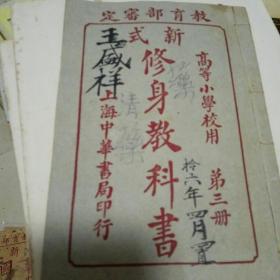 教育部審定
高等小學校用
第三册
新式
修身教科書
上海中華書局印行
王盛祥
拾六年四月置